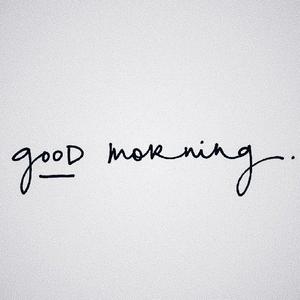 gooD moRning.